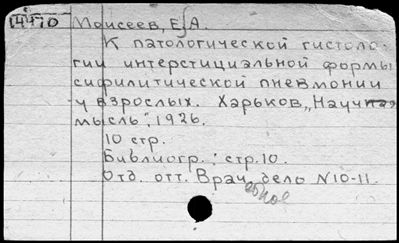 14470 Моисеев, Е.А.
К патологической гистоло-
гии интерстициальной формы
сифилитической пневмонии
у взрослых. Харьков, „Научная
мысль", 1926.
10 стр.
Библиогр.: стр. 10.
Отд. отт. Врачебное дело N10-11.